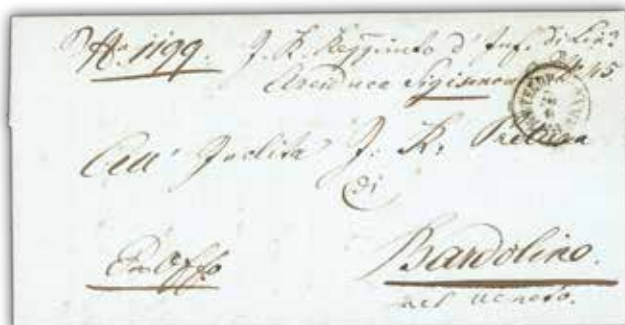 No. 1199. I. R. Reggimto d' Inf. di Lin.a
Arciduca Sigismondo No. 45
All' Inclita I. R. Pretura
di
Ex Offo Bardolino.
nel Veneto.